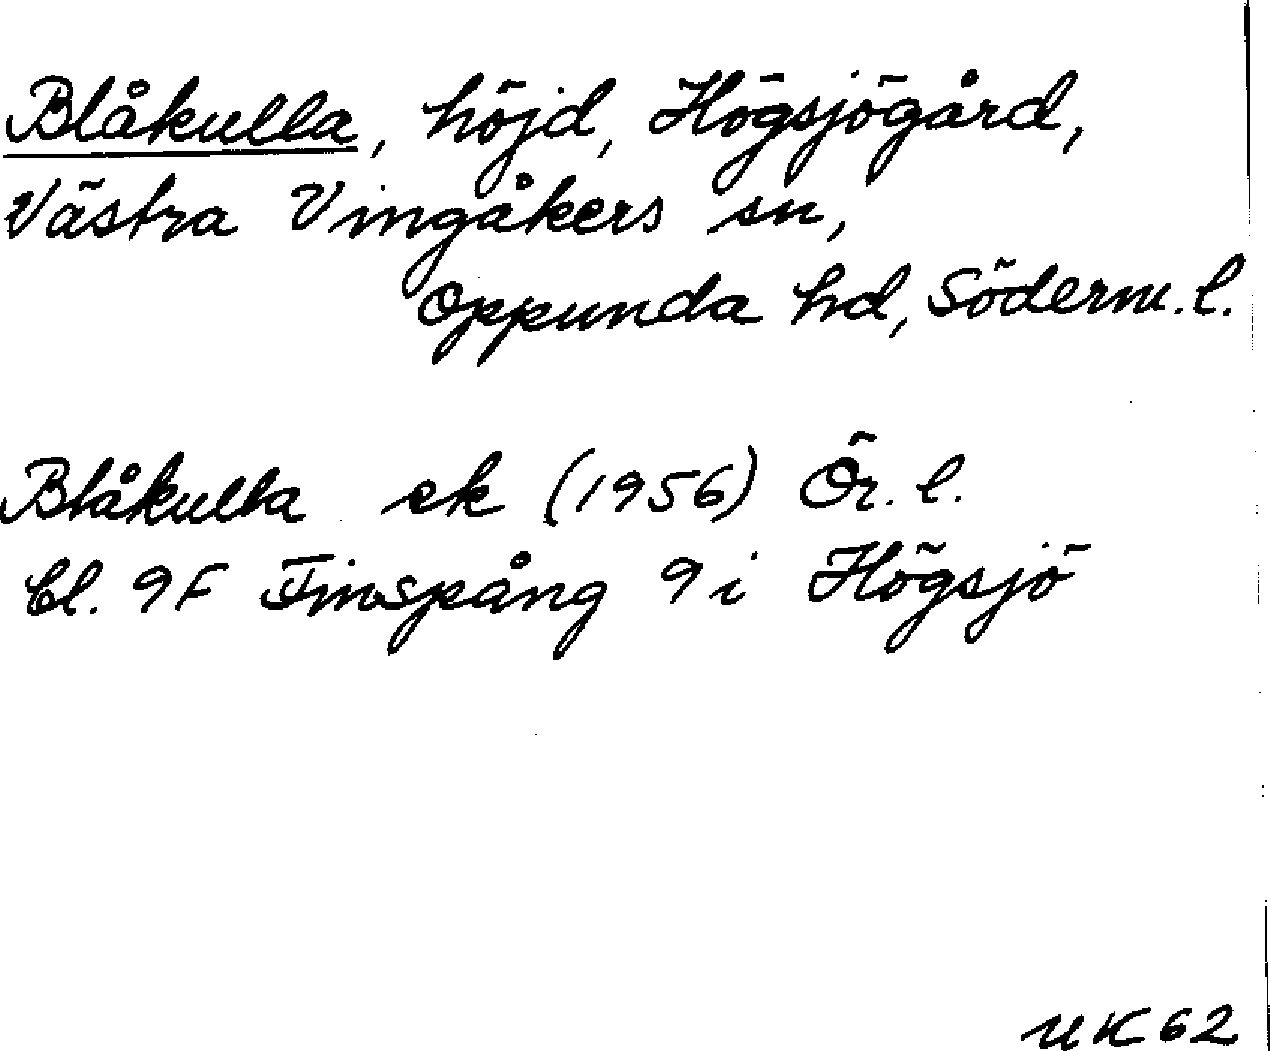 Blåkulla, höjd, Högsjögård,
Västra Vingåkers sn,
Oppunda hd, Söderm. l.
Blåkulla ek (1956) Ör. l.
bl. 9F Finspång 9i Högsjö
UK 62